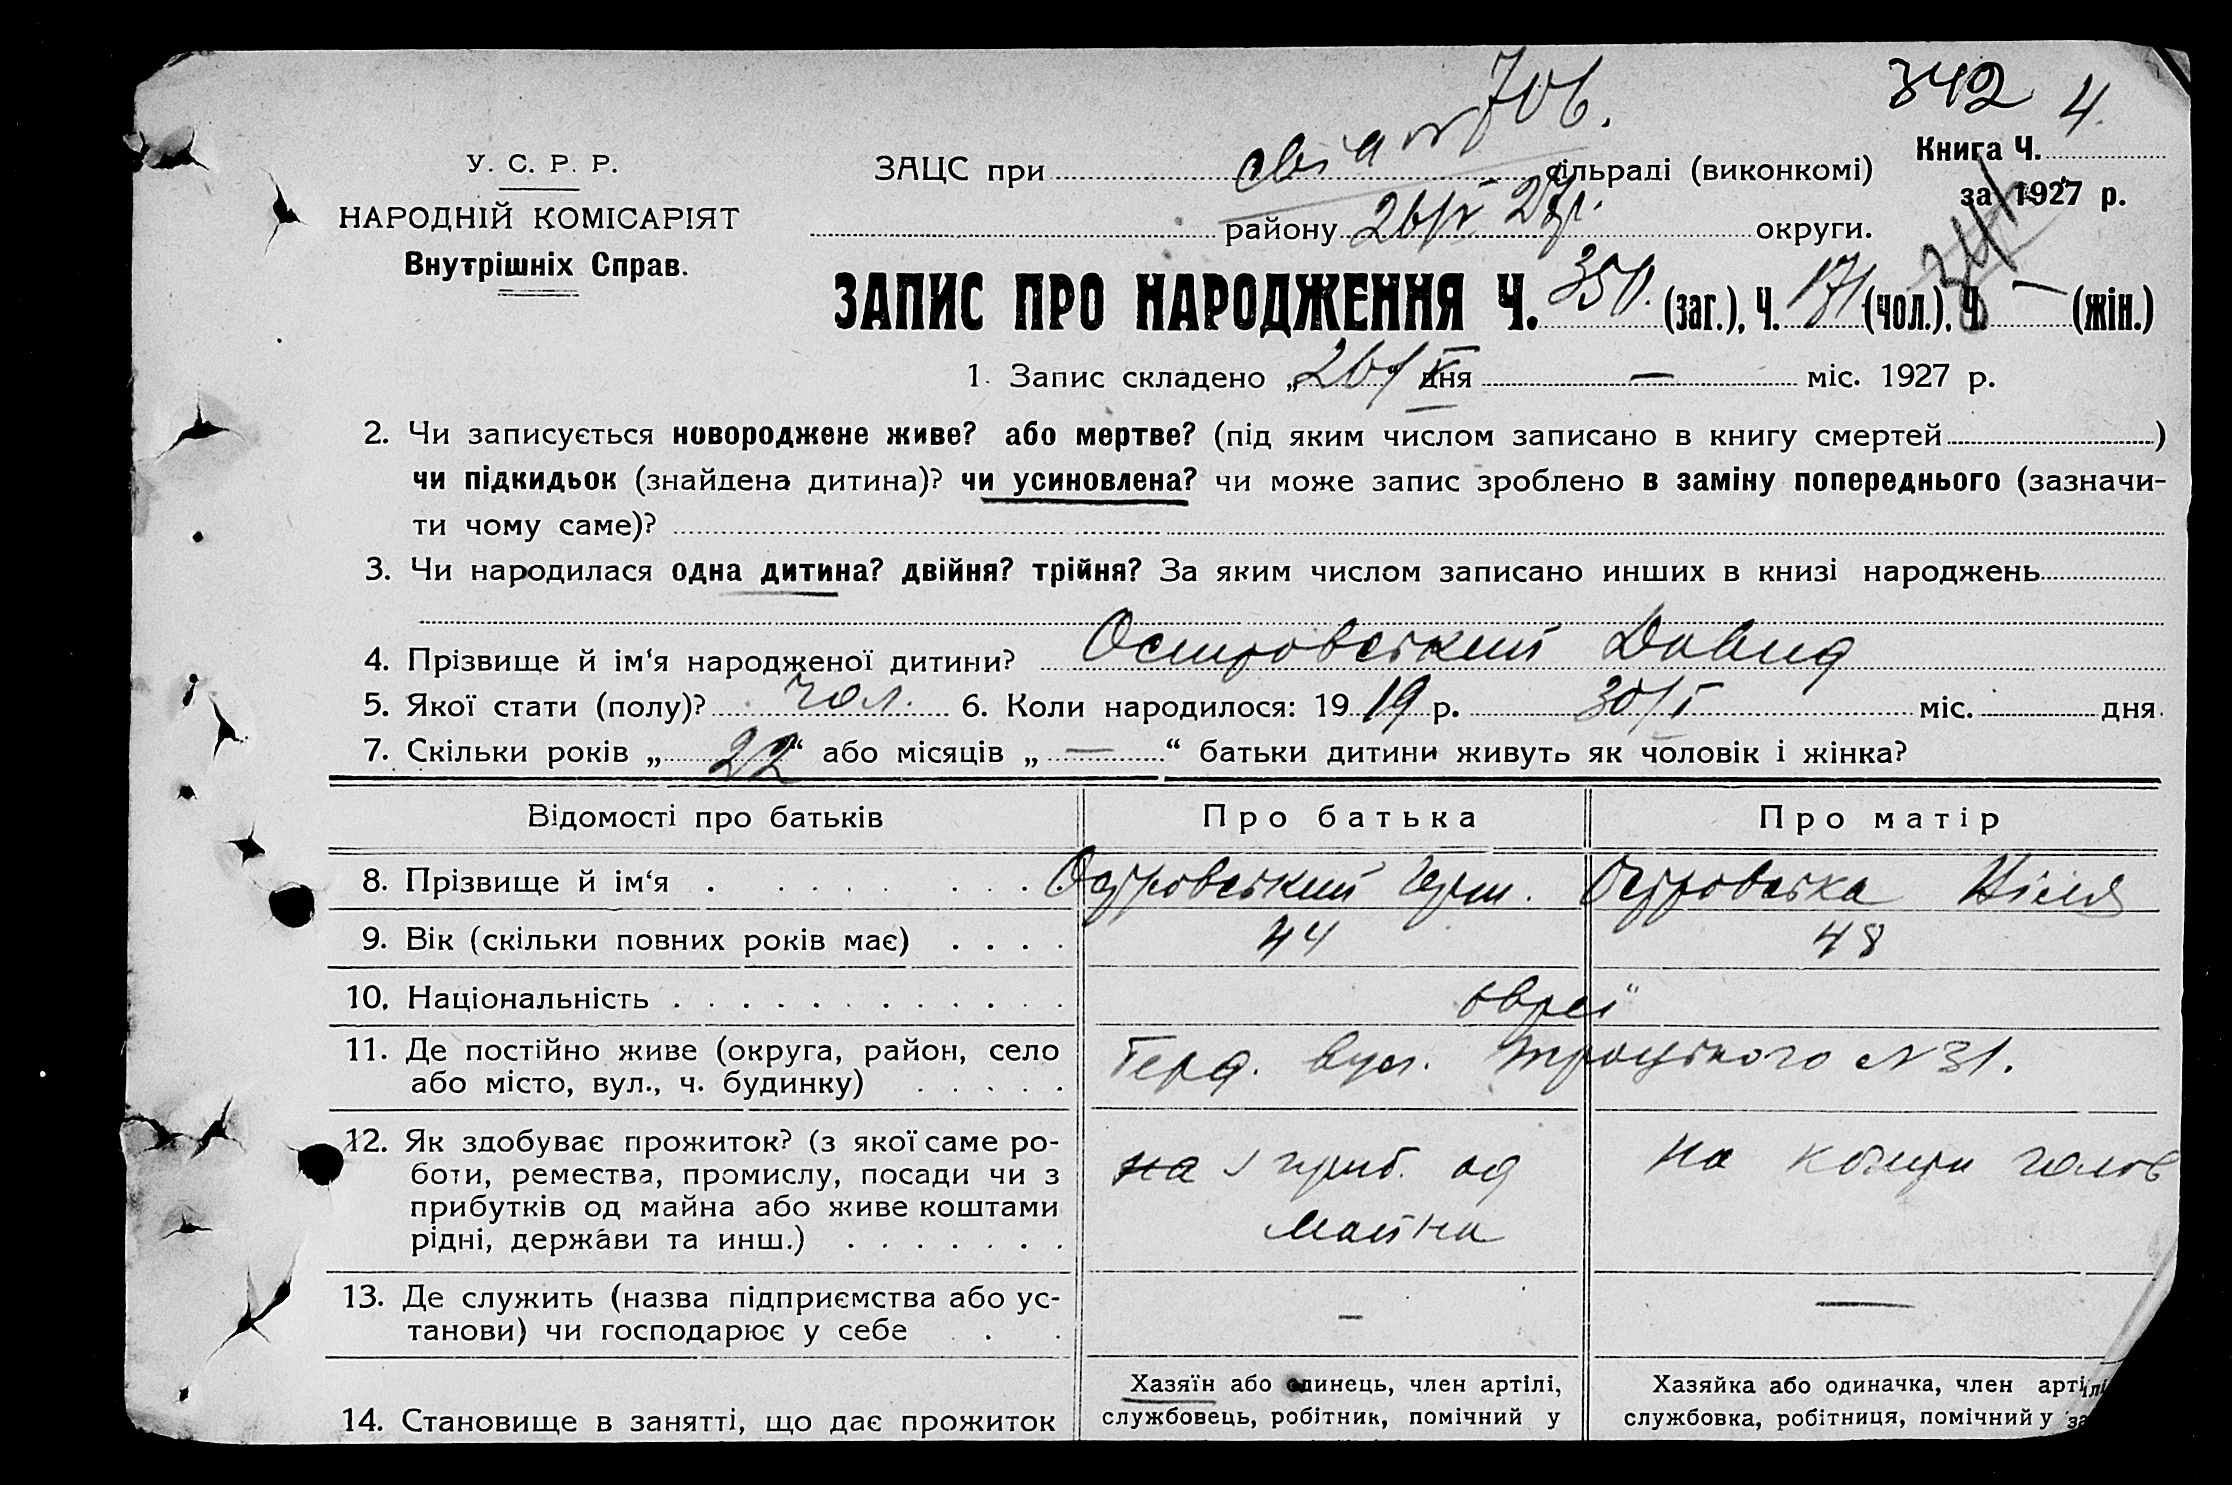 342
706.
4.
У. С. Р. Р.
ЗАЦС при сільраді (виконкомі) Книга Ч.
за 1927 р.
НАРОДНІЙ КОМІСАРІЯТ
району 26/V 27р. округи.
Внутрішніх Справ.
341
ЗАПИС ПРО НАРОДЖЕННЯ Ч. 350. (заг.), Ч. 171 (чол.), Ч. — (жін.)
1. Запис складено „26/V дня — міс. 1927 р.
2. Чи записується новороджене живе? або мертве? (під яким числом записано в книгу смертей )
чи підкидьок (знайдена дитина)? чи усиновлена? чи може запис зроблено в заміну попереднього (зазначи-
ти чому саме)?
3. Чи народилася одна дитина? двійня? трійня? За яким числом записано инших в книзі народжень
4. Прізвище й ім‘я народженої дитини? Островський Давид
5. Якої стати (полу)? чол. 6. Коли народилося: 19 19 р. 30/I міс. дня
7. Скільки років „ 22 “ або місяців „ — “ батьки дитини живуть як чоловік і жінка?
Відомості про батьків Про батька Про матір
8. Прізвище й ім‘я Островський Герш. Островська Ніля
9. Вік (скільки повних років має) 44 48
10. Національність євреї
11. Де постійно живе (округа, район, село
або місто, вул., ч. будинку) Берд. вул. Троцького N 31.
12. Як здобуває прожиток? (з якої саме ро-
боти, ремества, промислу, посади чи з
прибутків од майна або живе коштами
рідні, держави та инш.)
на приб. од
майна
на кошти голов
13. Де служить (назва підприємства або ус-
танови) чи господарює у себе — —
14. Становище в занятті, що дає прожиток
Хазяїн або одинець, член артілі,
службовець, робітник, помічний у
Хазяйка або одиначка, член артілі
службовка, робітниця, помічний у за